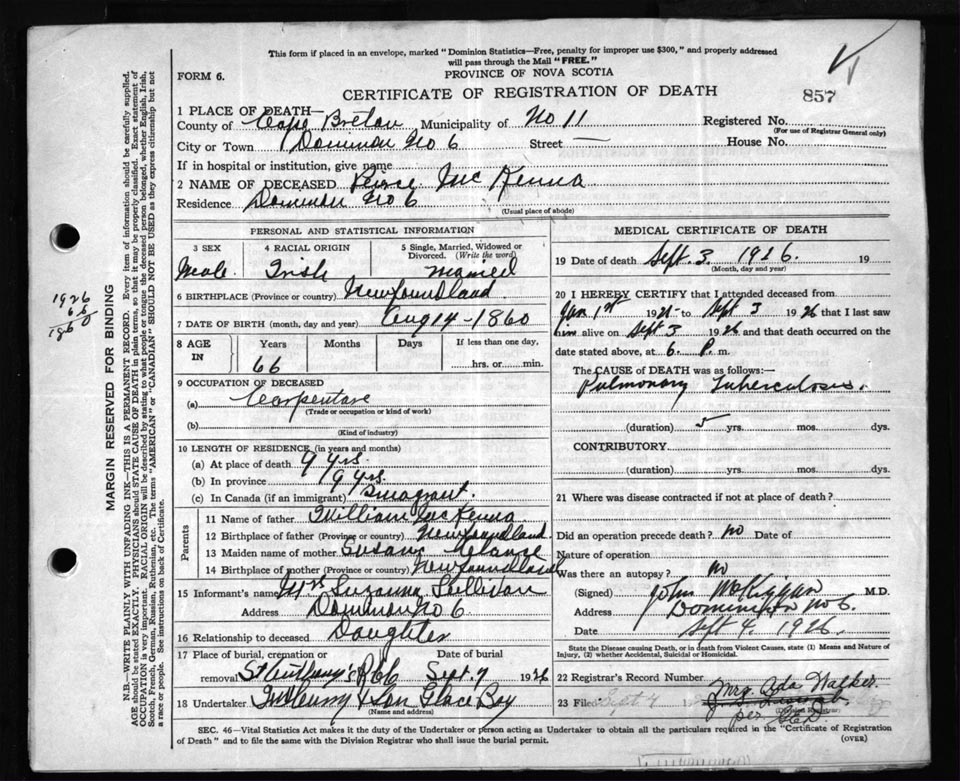 This form if placed in an envelope, marked "Dominion Statistics—Free, penalty for improper use $300," and properly addressed
will pass through the Mail "FREE."
FORM 6.
PROVINCE OF NOVA SCOTIA
CERTIFICATE OF REGISTRATION OF DEATH
857
1 PLACE OF DEATH—
County of Cape Breton Municipality of No 11 Registered No.
(For use of Registrar General only)
City or Town Dominion No 6 Street — House No.
If in hospital or institution, give name
2 NAME OF DECEASED Peirce McKenna
Residence Dominion No 6
(Usual place of abode)
PERSONAL AND STATISTICAL INFORMATION
3 SEX 4 RACIAL ORIGIN 5 Single, Married, Widowed or
Divorced. (Write the word)
Male Irish Married
6 BIRTHPLACE (Province or country) Newfoundland
7 DATE OF BIRTH (month, day and year) Aug 14 - 1860
8 AGE IN Years Months Days If less than one day,
66 hrs. or min.
9 OCCUPATION OF DECEASED
(a) Carpentare
(Trade or occupation or kind of work)
(b)
(Kind of industry)
10 LENGTH OF RESIDENCE (in years and months)
(a) At place of death 9 yrs.
(b) In province 19 yrs.
(c) In Canada (if an immigrant)
Parents
11 Name of father William McKenna
12 Birthplace of father (Province or country) Newfoundland
13 Maiden name of mother Susan
14 Birthplace of mother (Province or country) Newfoundland
15 Informant's name Mrs Suzanna Sullivan
Address Dominion No 6
16 Relationship to deceased Daughter
17 Place of burial, cremation or Date of burial
removal St Anthony's Sept. 7 1926
18 Undertaker & Son Glace Bay
(Name and address)
MEDICAL CERTIFICATE OF DEATH
19 Date of death Sept. 3 1926. 19
(Month, day and year)
20 I HEREBY CERTIFY that I attended deceased from
Jan 1st 1921 to Sept 3 1926 that I last saw
him alive on Sept 3 1926 and that death occurred on
date stated above, at 6. P. m.
The CAUSE of DEATH was as follows:—
Pulmonary Tuberculosis.
(duration) 5 yrs. mos. dys.
CONTRIBUTORY
(duration) yrs. mos. dys.
21 Where was disease contracted if not at place of death?
Did an operation precede death? no Date of
Nature of operation
Was there an autopsy? no
(Signed) John McKiggan M.D.
Address Dominion No 6.
Date Sept 4. 1926.
State the Disease causing Death, or in death from Violent Causes, state (1) Means and Nature of
Injury, (2) whether Accidental, Suicidal or Homicidal.
22 Registrar's Record Number
23 Filed Sept 7 Mrs. Ada Walker
per
SEC. 46—Vital Statistics Act makes it the duty of the Undertaker or person acting as Undertaker to obtain all the particulars required in the "Certificate of Registration
of Death" and to file the same with the Division Registrar who shall issue the burial permit.
(OVER)
MARGIN RESERVED FOR BINDING
N.B.—WRITE PLAINLY WITH UNFADING INK—THIS IS A PERMANENT RECORD. Every item of information should be carefully supplied.
AGE should be stated EXACTLY. PHYSICIANS should STATE CAUSE OF DEATH in plain terms, so that it may be properly classified. Exact statement of
OCCUPATION is very important. RACIAL ORIGIN will be described by stating to what people or tongue the deceased person belonged, whether English, Irish,
Scotch, French, German, Russian, Ruthenian, etc. The terms "AMERICAN" or "CANADIAN" SHOULD NOT BE USED as they express citizenship but not
a race or people. See instructions on back of Certificate.
1926
66
1860